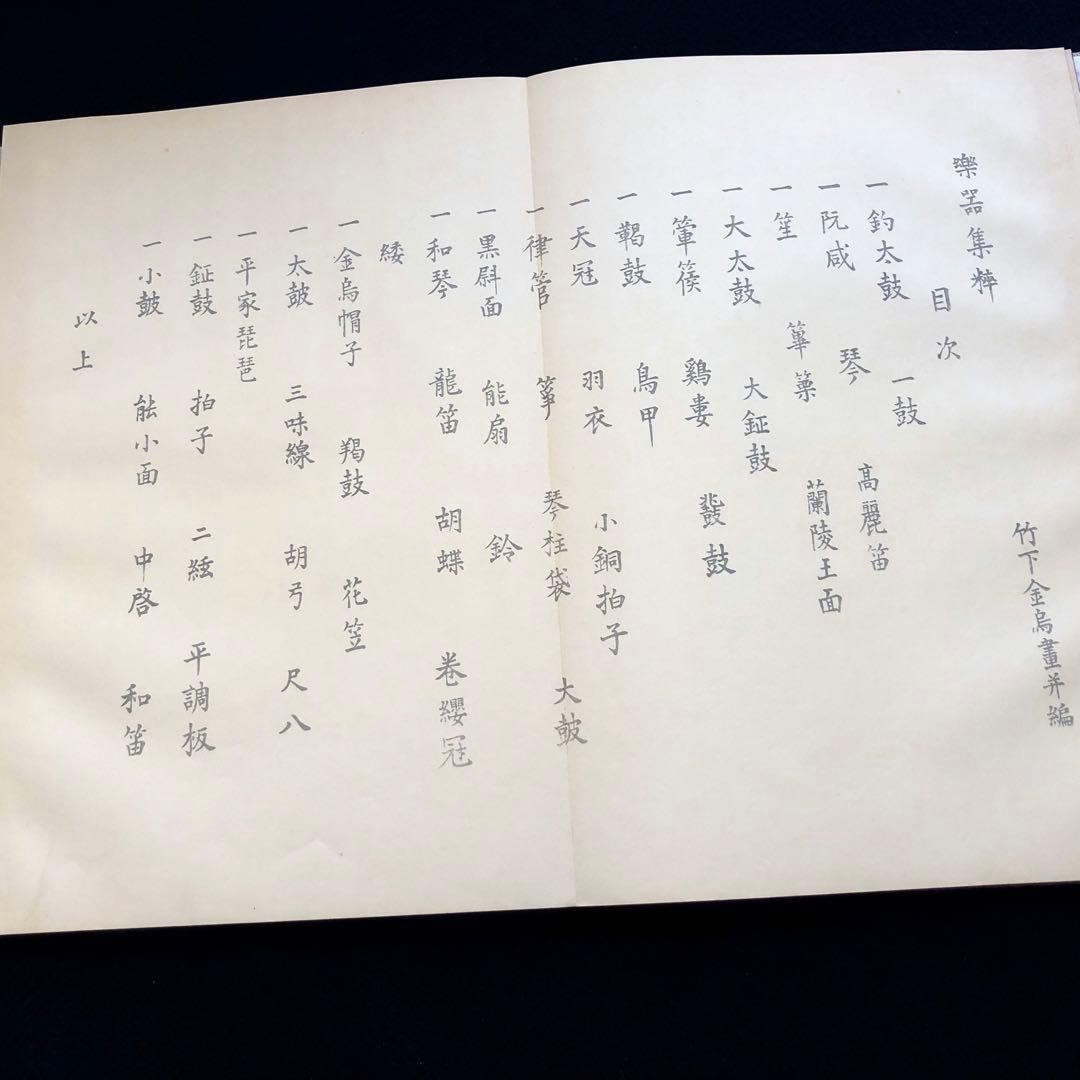 樂器集粹 竹下金烏畫并編
目次
一 釣太鼓 一鼓
一 阮咸 琴 高麗笛
一 笙 篳篥 蘭陵王面
一 大太鼓 大鉦鼓
一 箜篌 鷄婁 鼗鼓
一 鞨鼓 鳥甲
一 天冠 羽衣 小銅拍子
一 律管 箏 琴柱袋 大皷
一 黒尉面 能扇 鈴
一 和琴 龍笛 胡蝶 卷纓冠
緌
一 金烏帽子 羯鼓 花笠
一 太皷 三味線 胡弓 尺八
一 平家琵琶
一 鉦鼓 拍子 二絃 平調板
一 小皷 能小面 中啓 和笛
以上